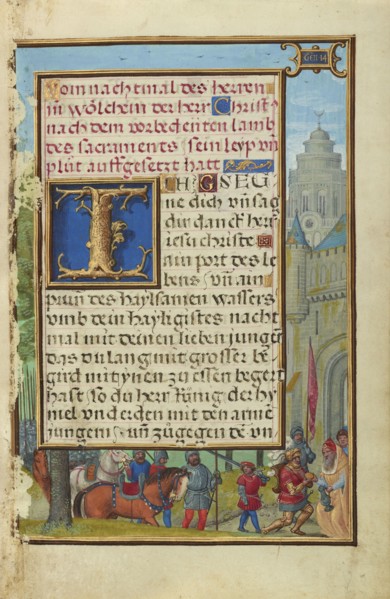 GEN 14
Vom nachtmal des herren
in wölchem der herr Christ9
nach dem vorbedeüten lamb
des sacraments sein leyp vn̄
plüt auffgesetzt hatt
ICH GSEG
ne dich vn̄ sag
dir danck herr
iesu christe
ain port des le
bens vn̄ ain
prun̄ des haylsamen wassers
vmb dein hayligistes nacht
mal mit deinen lieben jungen̄
das du lang mit grosser be
gird mit ynen zu essen begert
hast so du herr künig der hy
mel vnd erden mit den arme̅
jungern vn̄ zů gegen de̅ vn